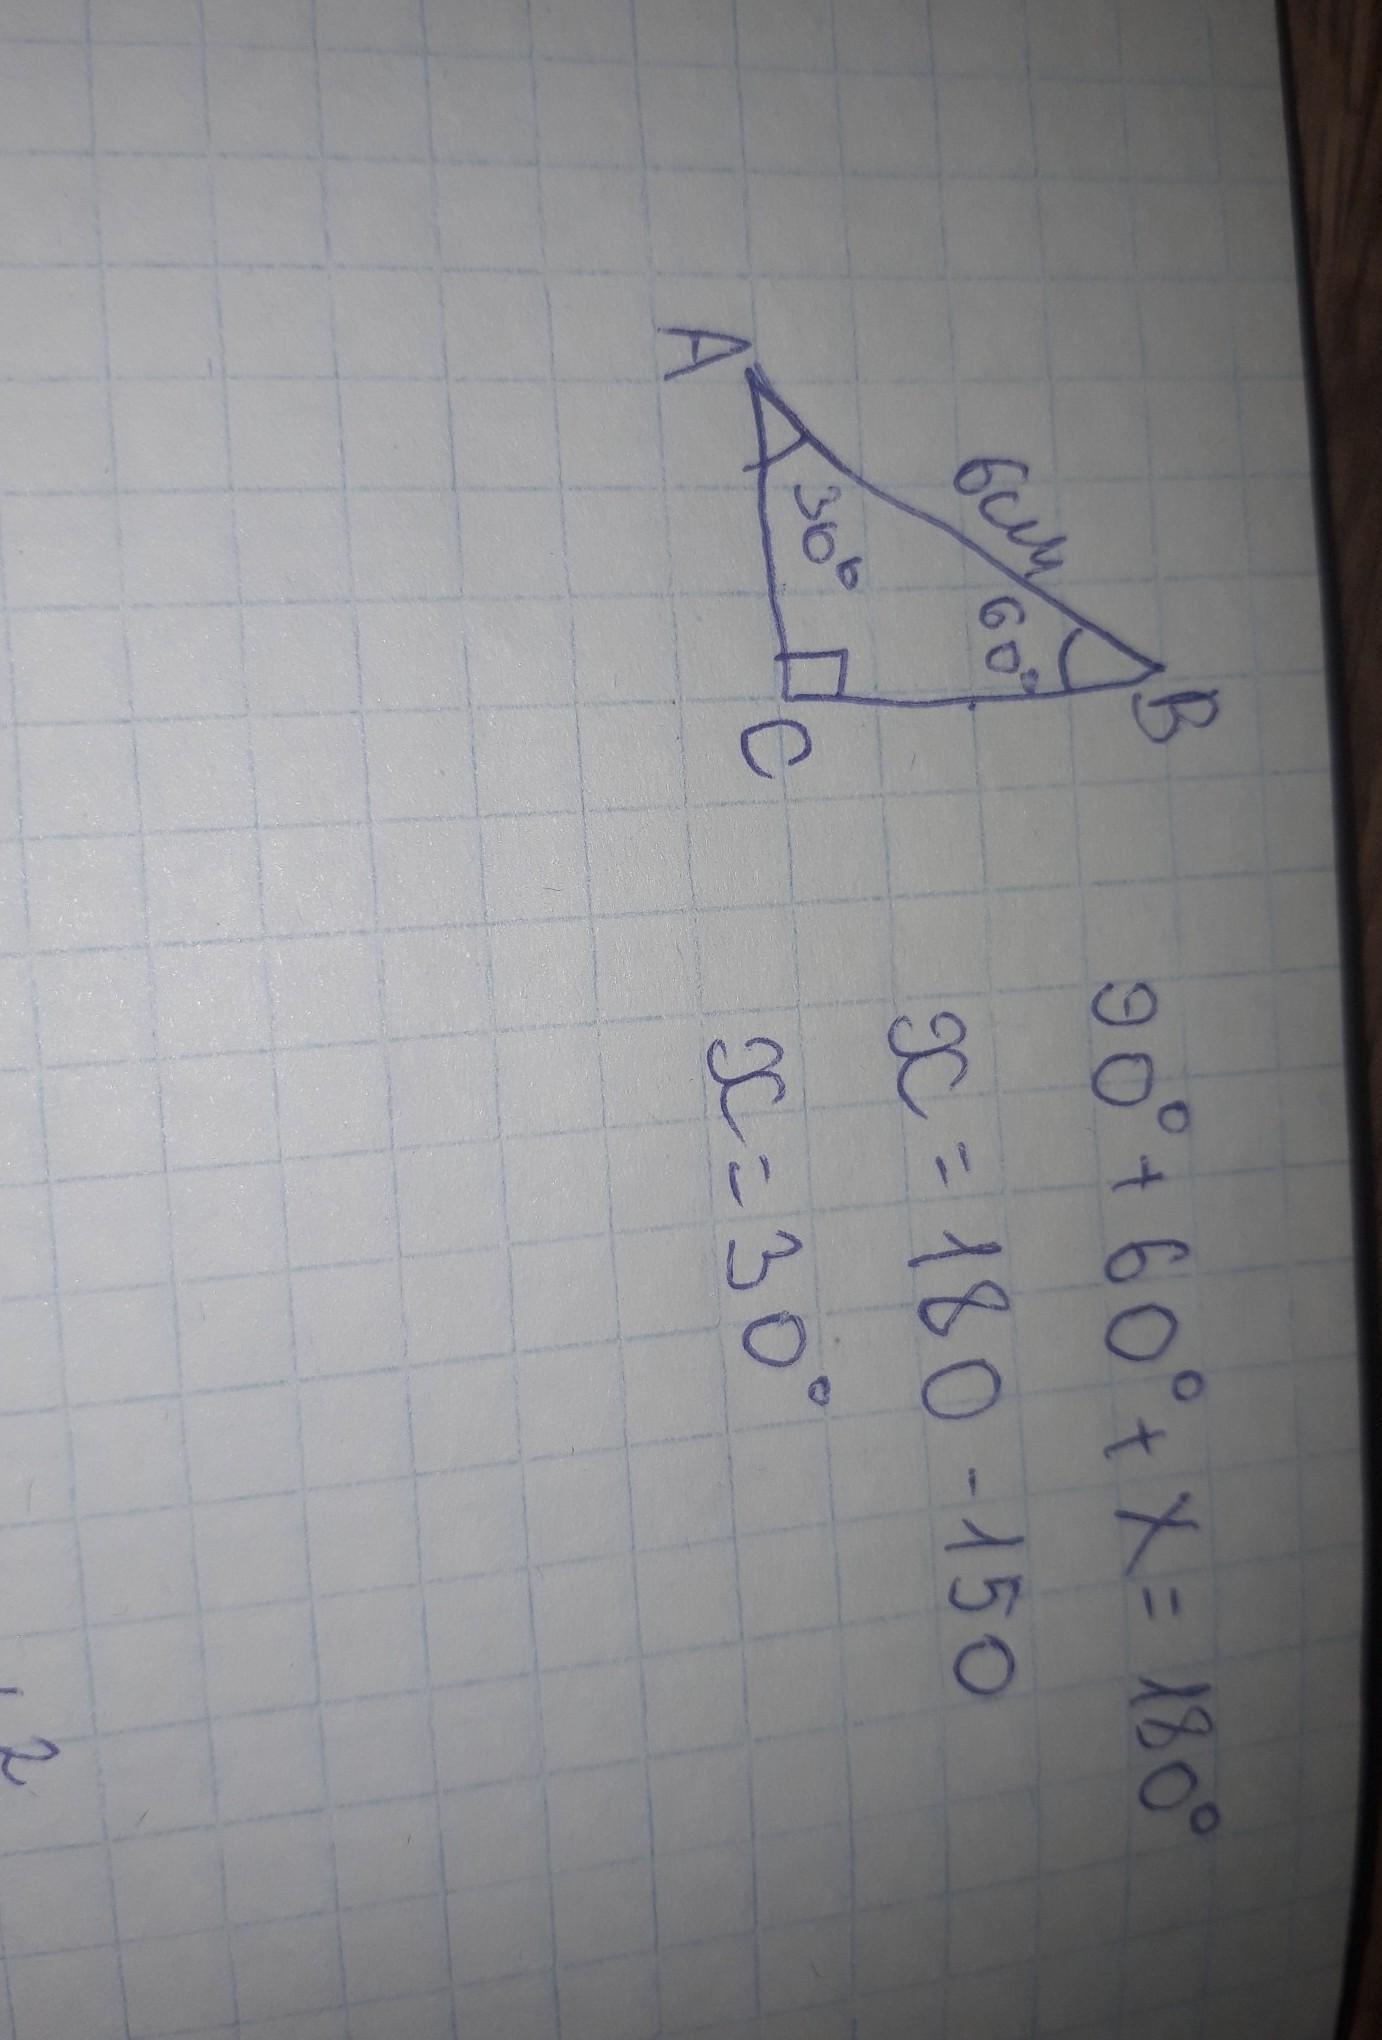 B
60°
6см
30°
A
C
90° + 60° + x = 180°
x = 180 - 150
x = 30°
2